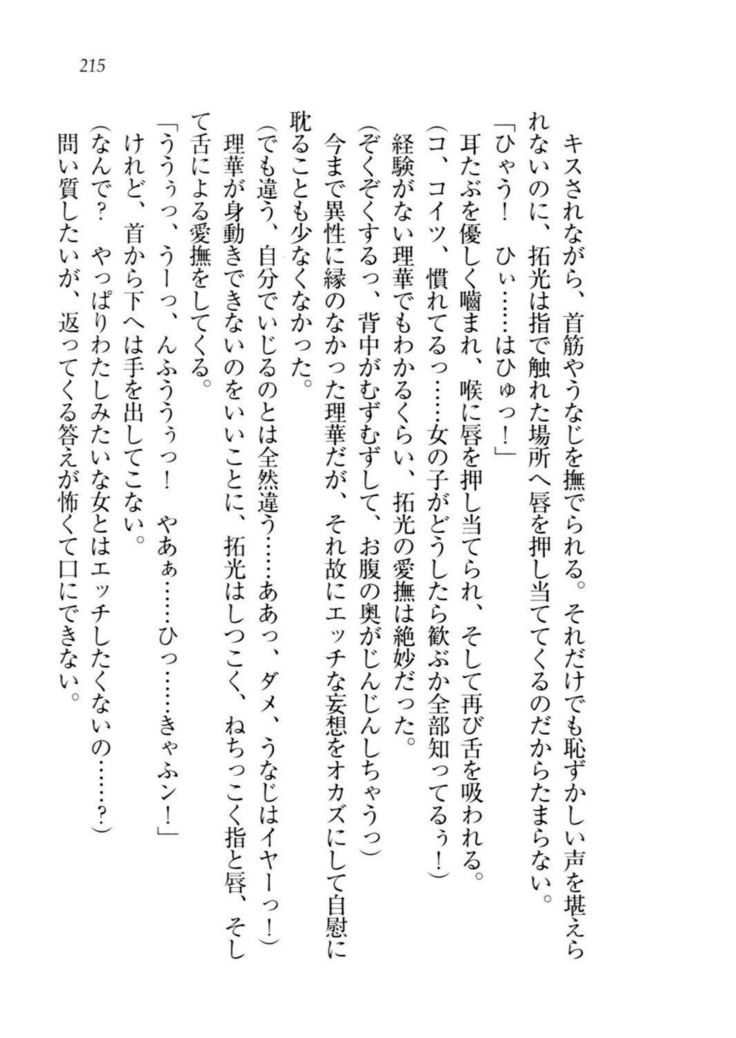 215
キスされながら、首筋やうなじを撫でられる。それだけでも恥ずかしい声を堪えら
れないのに、拓光は指で触れた場所へ唇を押し当ててくるのだからたまらない。
「ひゃう！　ひぃ……はひゅっ！」
耳たぶを優しく嚙まれ、喉に唇を押し当てられ、そして再び舌を吸われる。
（コ、コイツ、慣れてるっ……女の子がどうしたら歓ぶか全部知ってるぅ！）
経験がない理華でもわかるくらい、拓光の愛撫は絶妙だった。
（ぞくぞくするっ、背中がむずむずして、お腹の奥がじんじんしちゃうっ）
今まで異性に縁のなかった理華だが、それ故にエッチな妄想をオカズにして自慰に
耽ることも少なくなかった。
（でも違う、自分でいじるのとは全然違う……ああっ、ダメ、うなじはイヤーっ！）
理華が身動きできないのをいいことに、拓光はしつこく、ねちっこく指と唇、そし
て舌による愛撫をしてくる。
「ううぅっ、うーっ、んふううぅっ！　やあぁ……ひっ……きゃふン！」
けれど、首から下へは手を出してこない。
（なんで？　やっぱりわたしみたいな女とはエッチしたくないの……？）
問い質したいが、返ってくる答えが怖くて口にできない。